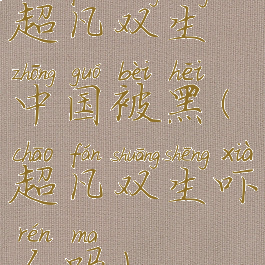 超凡双生
zhōng guó bèi hēi
中国被黑(
chāo fán shuāng shēng xià
超凡双生吓
rén ma
人吗)